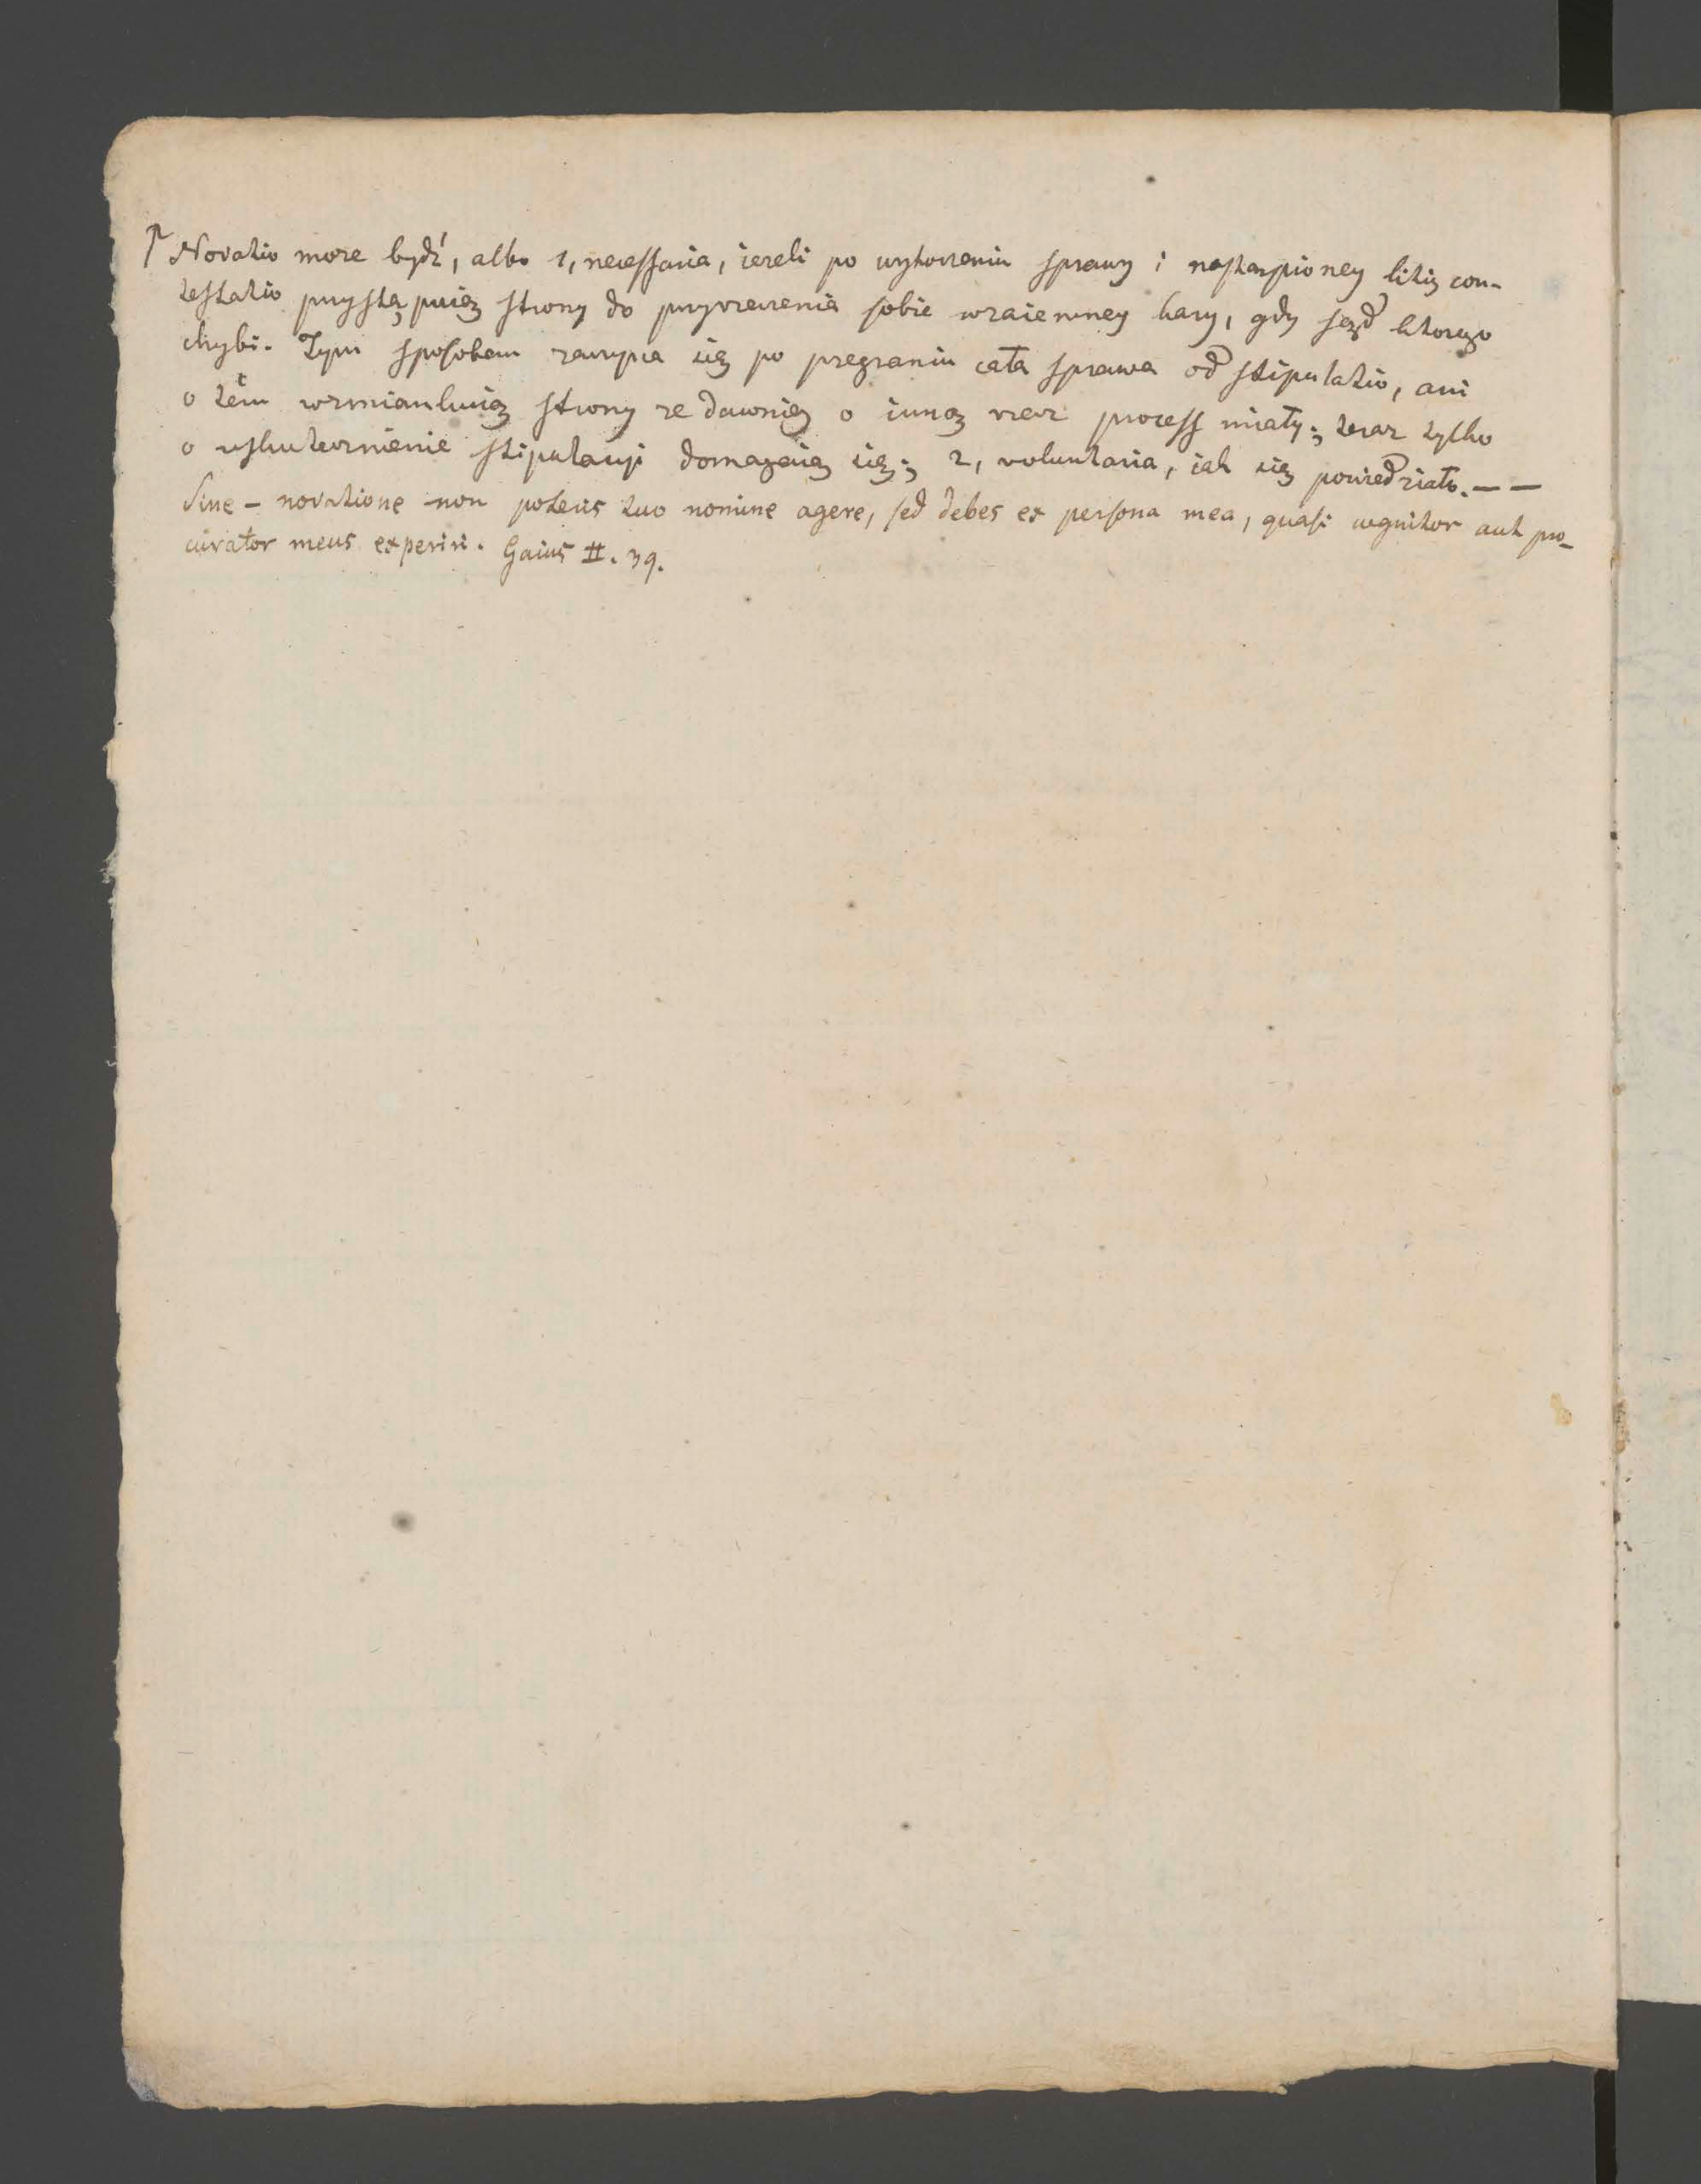 ↑ Novatio moze bydź, albo 1, necessaria, iezeli po wytoczeniu sprawy i nastąpioney litis con-
testatio przystąpuią strony do przyrzeczenia sobie wzaiemney kary, gdy sąd ktorego
chybi. Tym sposobem zaczyna się po przegraniu cała sprawa od stipulatio, ani
o tém wzmiankuią strony ze dawniey o inną rzecz process miały; teraz tylko
o uskutecznienie stipulacyi domagaią się; 2, voluntaria, iak się powiedziało. — —
Sine – novatione non poteris tuo nomine agere, sed debes ex persona mea, quasi cognitor aut pro-
curator meus experiri. Gaius II. 39.